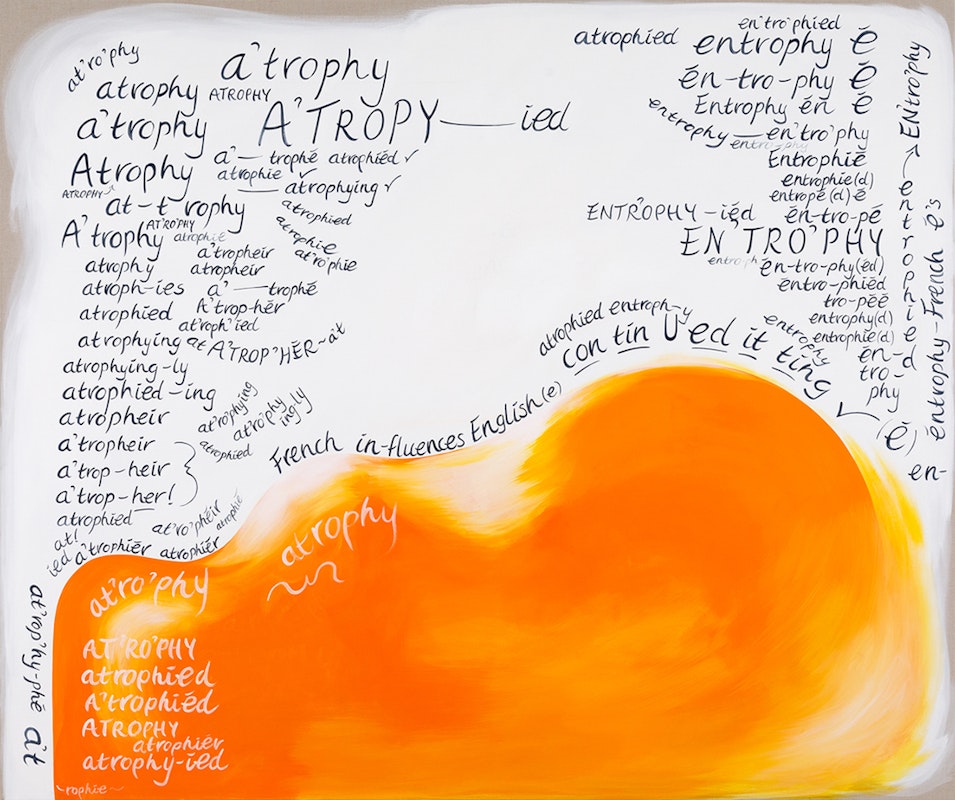 at'ro'phy
atrophy
a'trophy
ATROPHY
a'trophy
A'TROPY — ied
Atrophy
a' — trophé atrophiéd ✓
atrophie ✓
— atrophying ✓
ATROPHY
at-t'rophy
atrophied
AT'RO'PHY
A'trophy
atrophie
atrophie
a'tropheir
at'ro'phie
atrophy
atropheir
atroph-ies
a' — trophé
atrophiéd
A'trop-hér
at'roph'ied
atrophying
at A'TROP'HĒR-ait
atrophying-ly
atrophied-ing
atropheir
at'rophying
at'ro'phy
ingly
atrophied
a'tropheir
a'trop-heir
a'trop-her!
atrophied
at'ro'phéir
atrophié
at!
ied
a'trophiér
atrophiér
at'rop'hy-phé a't
en'tro'phied
atrophied
entrophy é
én-tro-phy é
Entrophy én é
entrophy — en'tro'phy
entro-phy
Entrophié
entrophie(d)
entropé(d)é
ENT'ROPHY-iéd
én-tro-pé
EN'TRO'PHY
entro-ph
én-tro-phy(éd)
entro-phiéd
tro-péé
entrophy(d)
entrophy
entrophie(d)
én-
tro-
phy
entrophied → ENtro'phy
entrophy-French é's
(é)
en-
atrophied entroph-y
French in-fluences English(e) con tin U ed it ting
atrophy
at'ro'phy
AT'RO'PHY
atrophied
A'trophiéd
ATROPHY
atrophiér
atrophy-ied
~rophie~